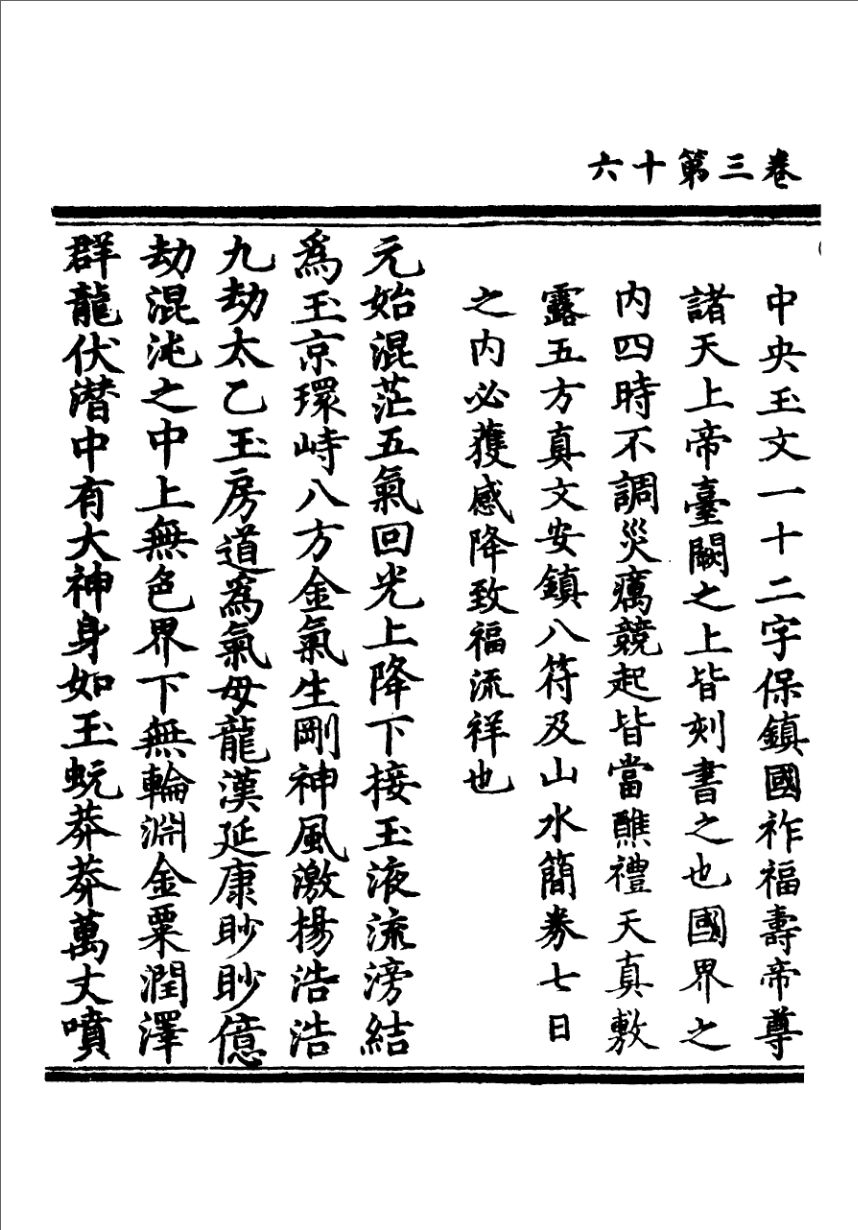 卷三第十六
中央玉文一十二字保鎮國祚福壽帝尊
諸天上帝臺闕之上皆刻書之也國界之
内四時不調災癘競起皆當醮禮天真敷
露五方真文安鎮八符及山水簡券七日
之内必獲感降致福流祥也
元始混茫五氣回光上降下接玉液流滂結
爲玉京環峙八方金氣生剛神風激揚浩浩
九劫太乙玉房道爲氣母龍漢延康眇眇億
劫混沌之中上無色界下無輪淵金粟潤澤
群龍伏潜中有大神身如玉蚖莽莽萬丈噴